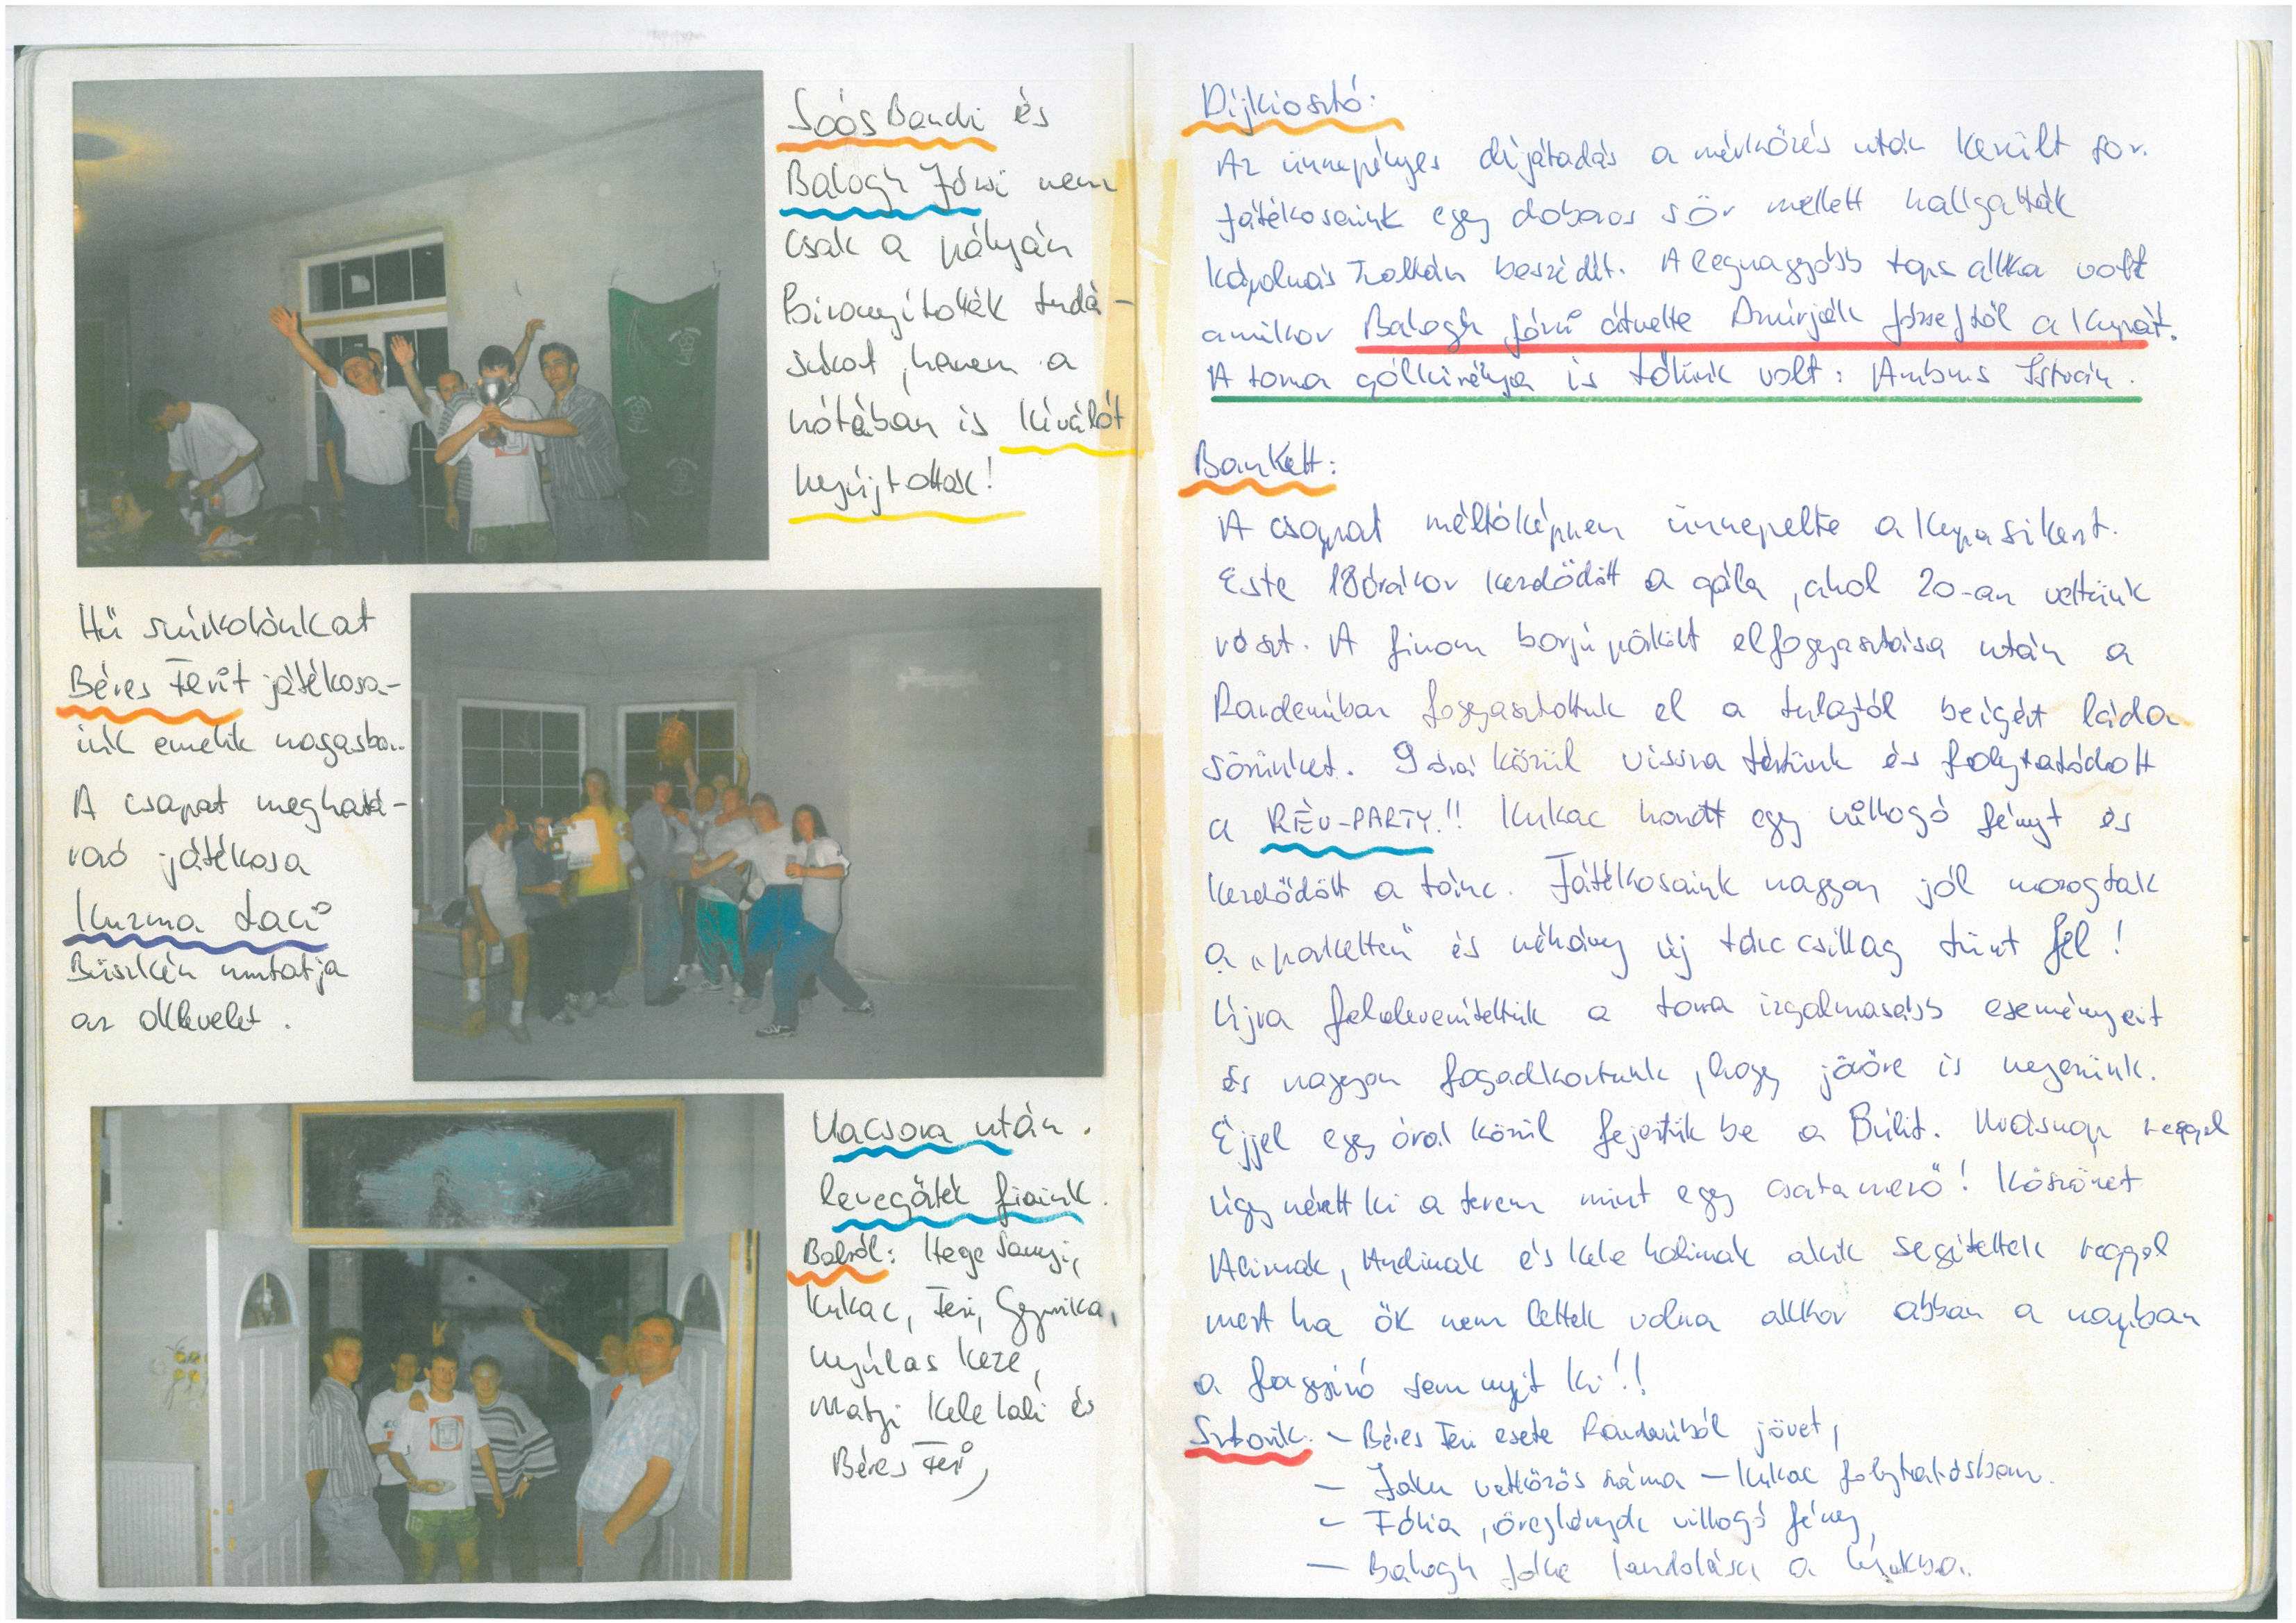 Soós Bandi és
Balogh Józsi nem
csak a pályán
Bizonyították tudá-
sukat, hanem a
nótában is kiválót
nyújtottak!
Hű szurkolónkat
Béres Ferit játékosa-
ink emelik magasba..
A csapat meghatá-
rozó játékosa
Kuzma Laci
Büszkén mutatja
az oklevelet.
Vacsora után.
levegőztek fiaink.
Balról: Hege Sanyi,
Kukac, Feri, Gyurika,
Nyúlas Keze,
Matyi Kele Lali és
Béres Feri,
Díjkiosztó:
Az ünnepélyes díjátadás a mérkőzés után került sor.
Játékosaink egy dobozos sör mellett hallgatták
Kápolnás Zoltán beszédét. A legnagyobb taps akkor volt
amikor Balogh Józsi átvette Dmirják Józseftől a kupát.
A torna gólkirálya is tőlünk volt: Ambrus István.
Bankett:
A csapat méltóképpen ünnepelte a kupasikert.
Este 18 órakor kezdődött a gála, ahol 20-an vettünk
részt. A finom borjúpörkölt elfogyasztása után a
Randevúban fogyasztottuk el a tulajtól beígért láda
sörünket. 9 óra körül vissza tértünk és folytatódott
a RÉV-PARTY!! Kukac hozott egy villogó fényt és
kezdődött a tánc. Játékosaink nagyon jól mozogtak
a „parketten" és néhány új tánccsillag tűnt fel!
Újra felelevenítettük a torna izgalmasabb eseményeit
és nagyon fogadkoztunk, hogy jövőre is nyerünk.
Éjjel egy óra körül fejeztük be a Bulit. Másnap reggel
úgy nézett ki a terem mint egy csatamező! Köszönet
Alinak, Andinak és Kele Lalinak akik segítettek reggel
mert ha ők nem lettek volna akkor abban a napban
a fagyizó sem nyit ki!!
Sztorik. - Béres Feri esete Randevúból jövet,
- Jáku vetkőzős száma - Kukac folytatásban.
- Fólia, öreglányok villogó fény,
- Balogh Jóka landolása a